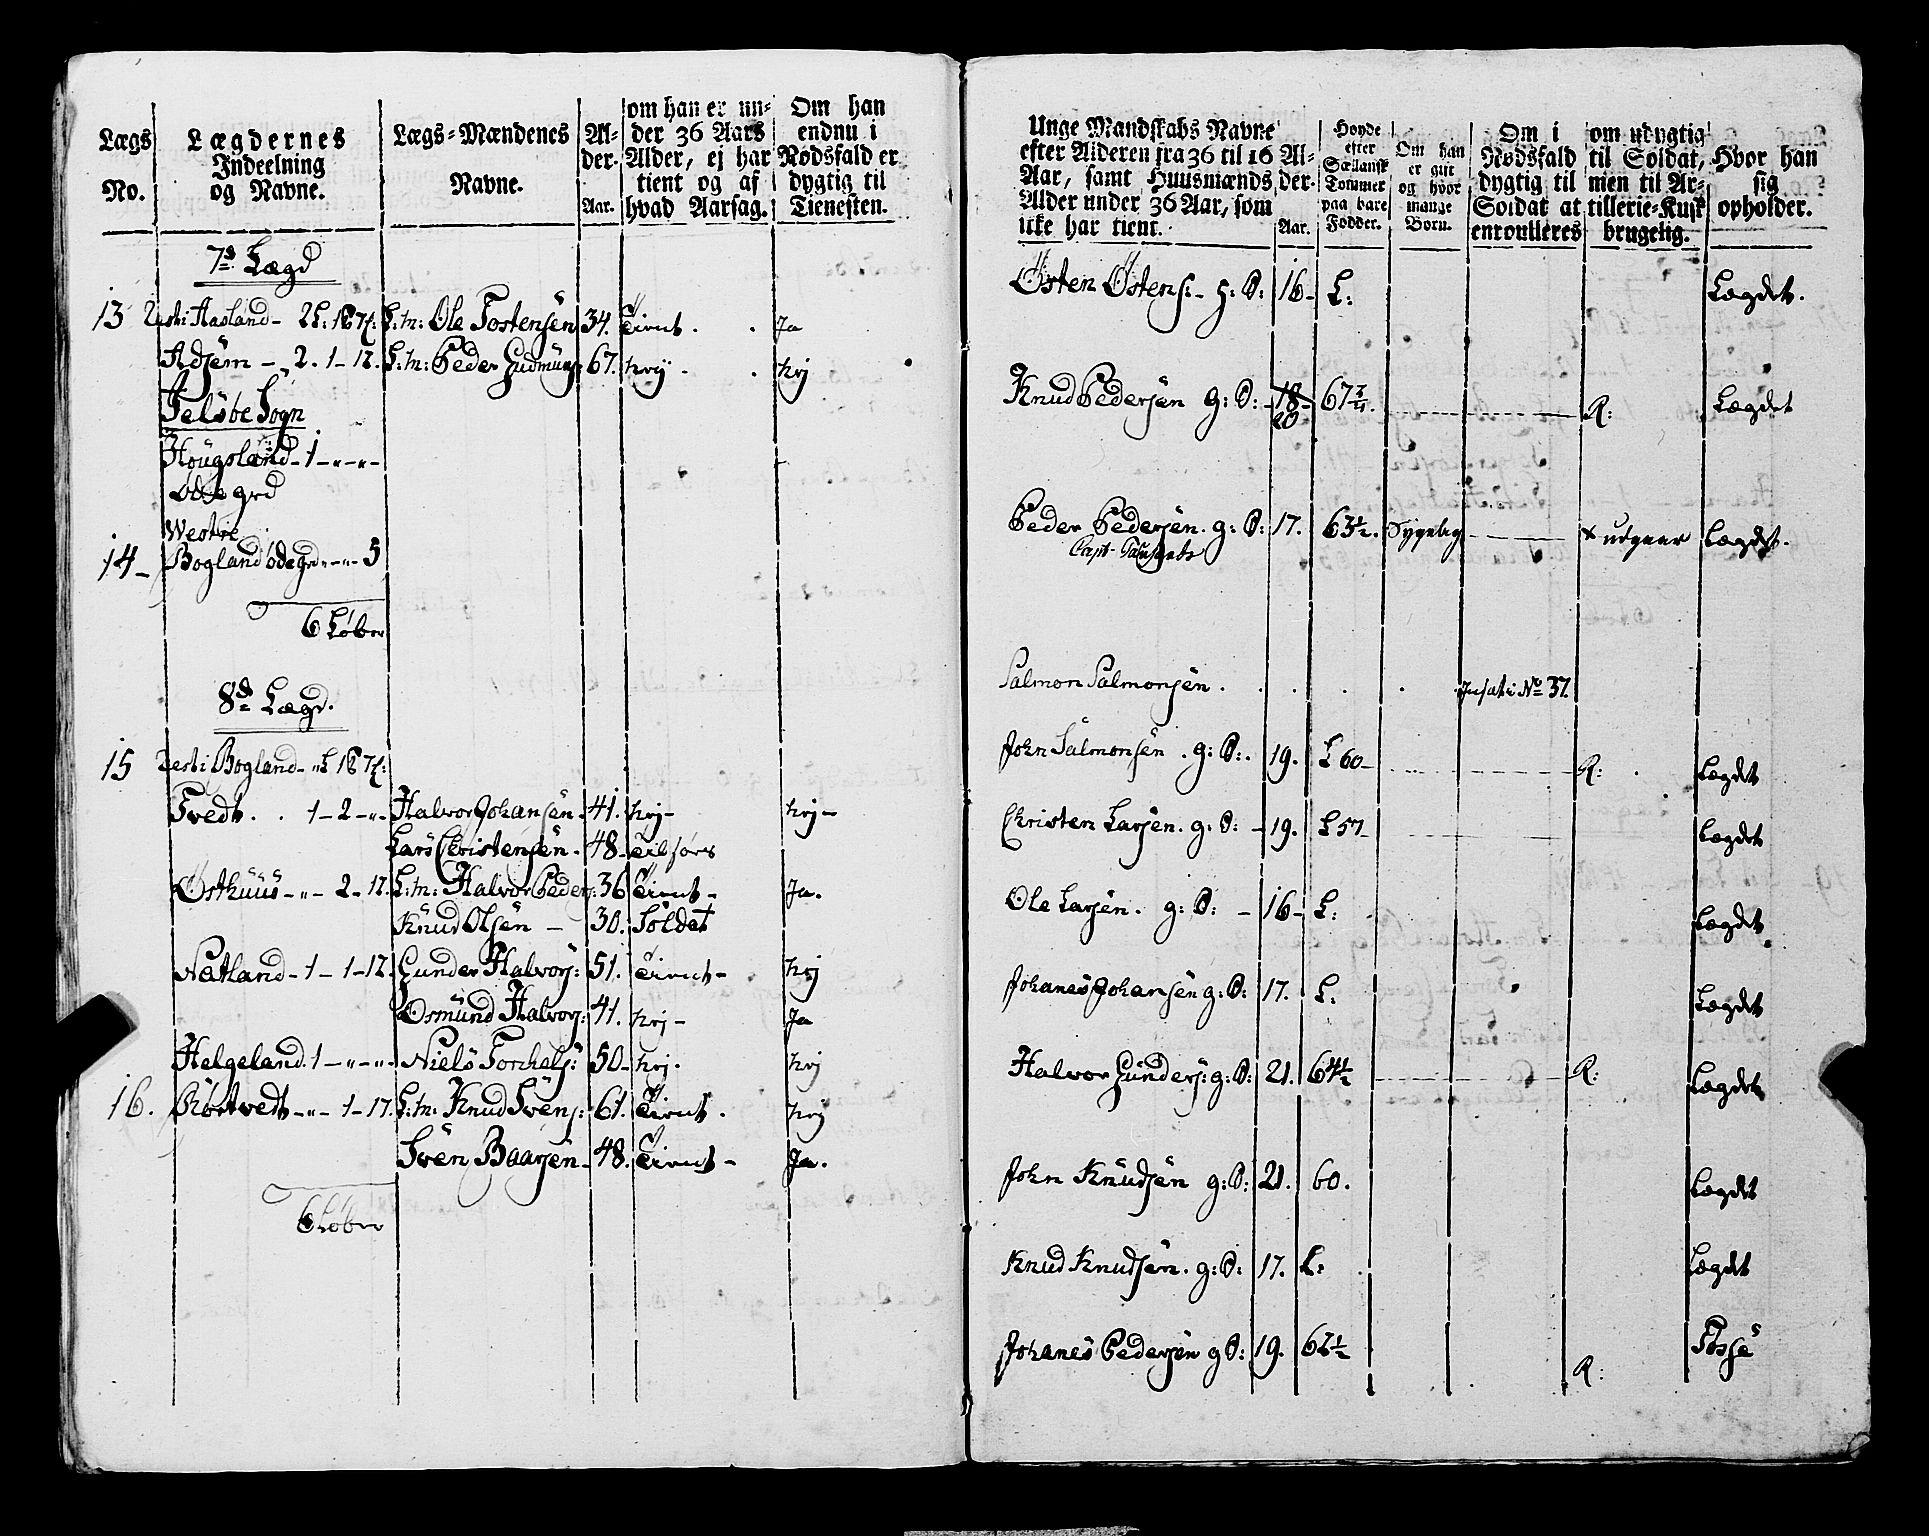 Lægs No.
Lægdernes Indeelning og Navne.
Lægs-Mændenes Navne.
Al-der. Aar.
om han er un-
der 36 Aars
Alder, ej har
tient og af
hvad Aarsag.
Om han
endnu i
Nødsfald er
dygtig til
Tienesten.
7de Lægd
13 Hasland
L:m: Ole Tostensen 34. Tient. Ja
Adsem - 2. 1-12. L:m: Peder Gudmuns 67. nej. nej
Felsbe Sogn
Hougsland - 1 - " - " -
Ødegrd
Westre
14 - Bogland ødegrd - " - " 5
6 Løber
8de Lægd.
15 Bogland
Tvedt. . 1 - 2 - " - Halvor Johansen - 41. nej - nej -
Lars Christensen - 48 -
Østhuus - " - 2 - 12. L:m: Halvor Peders: 36 Tient - Ja.
Knud Olsen - 30. Soldat
Nætland - 1 - 1 - 12. Gunder Halvors: 51. Tient - nej
Osmund Halvors: 41. nej - Ja
Helgeland. 1 - " - " - Niels Torkels: 50 - nej. nej
16. Røstvedt - " - 1 - 17. L:m: Knud Svens: 61. Tient. nej
Sven Baarsen - 48. Tient - Ja.
6 Løber
Unge Mandskabs Navne
efter Alderen fra 36 til 16
Aar, samt Huusmænds
Alder under 36 Aar, som
icke har tient.
Al-
der.
Aar.
Høyde
efter
Sællansk
Tommer
paa bare
Fødder.
Om han
er gift
og hvor
mange
Børn.
Om i
Nødsfald
dygtig til
Soldat at
enroulleres
om udygtig
til Soldat,
men til Ar-
tillerie-Kusk
brugelig.
Hvor han
sig
opholder.
Østen Østens: - g: S: 16 - L: Lægdet.
Knud Pedersen g: S: - 18 - 20 67 R: Lægdet
Peder Pedersen. g: S: 17. 63½. Sygelig udgaar Lægdet.
Salmon Salmonsen . . . . . No 37.
John Salmonsen . g: S: . 19. L 60 - R: . Lægdet
Christen Larsen. g: S: - 19. L 57 - Lægdet
Ole Larsen. g: S: - 16 - L: Lægdet
Johanes Johansen g: S: 17. L: Lægdet
Halvor Gunders: g: S: 21. 64½ R: Lægdet
John Knudsen g: S: 21. 60. Lægdet
Knud Knudsen. g: S: 17. L: Lægdet
Johanes Pedersen g S: 19. 62½ R: Fosse